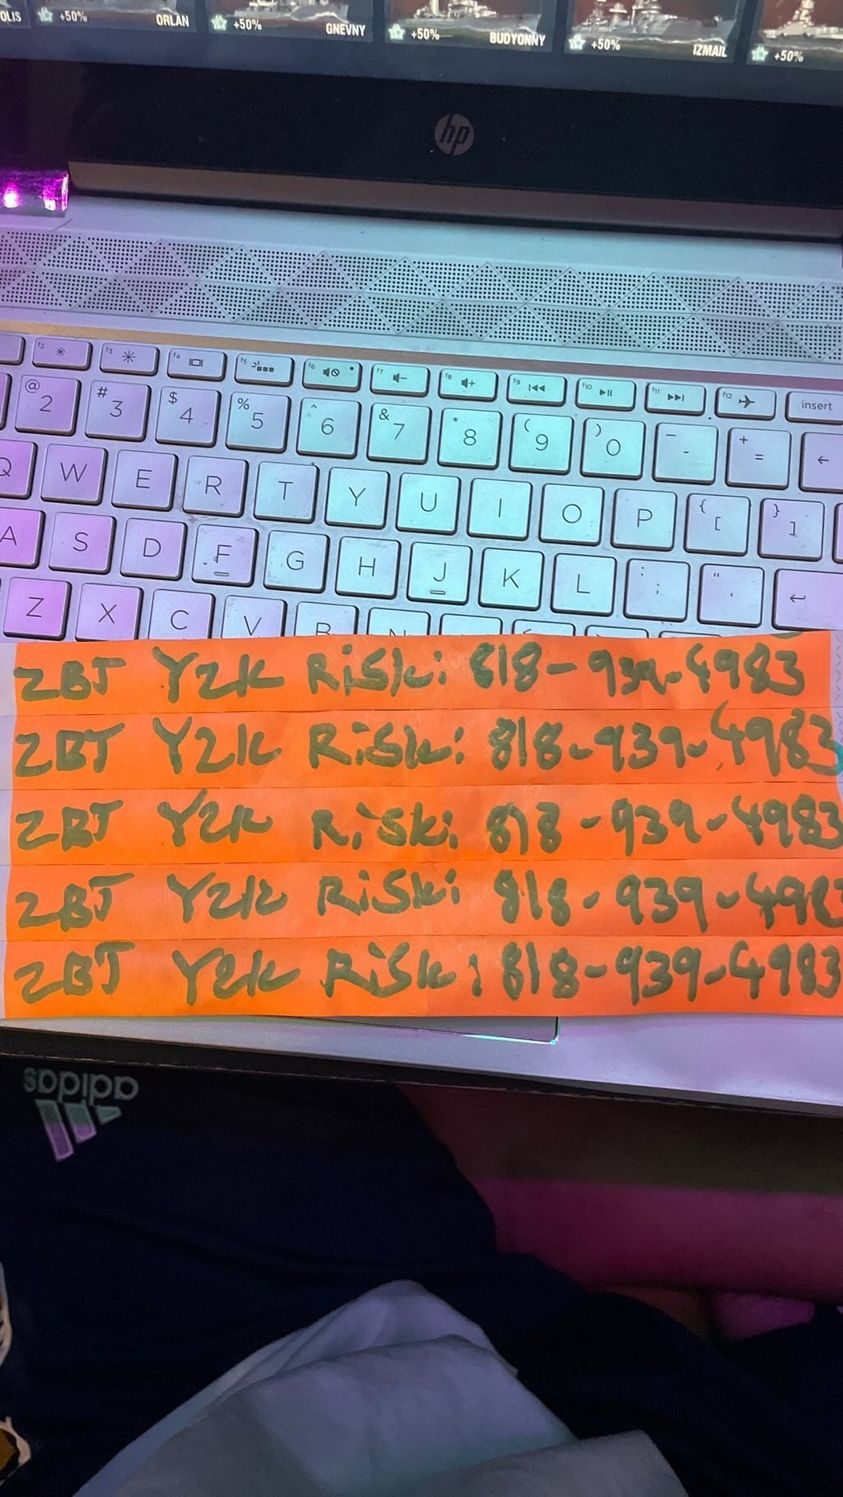 OLIS +50% ORLAN +50% GNEVNY +50% BUDYONNY +50% IZMAIL +50%
hp
f2 f3 f4 f5 f6 f7 f8 f9 f10 f11 f12 insert
@ 2 # 3 $ 4 % 5 ^ 6 & 7 * 8 ( 9 ) 0 _ - + =
Q W E R T Y U I O P { [ } ]
A S D F G H J K L : ; " '
Z X C V B N
ZBT Y2K Risk: 818-939-4983
ZBT Y2K Risk: 818-939-4983
ZBT Y2K Risk: 818-939-4983
ZBT Y2K Risk: 818-939-4983
ZBT Y2K Risk: 818-939-4983
adidas